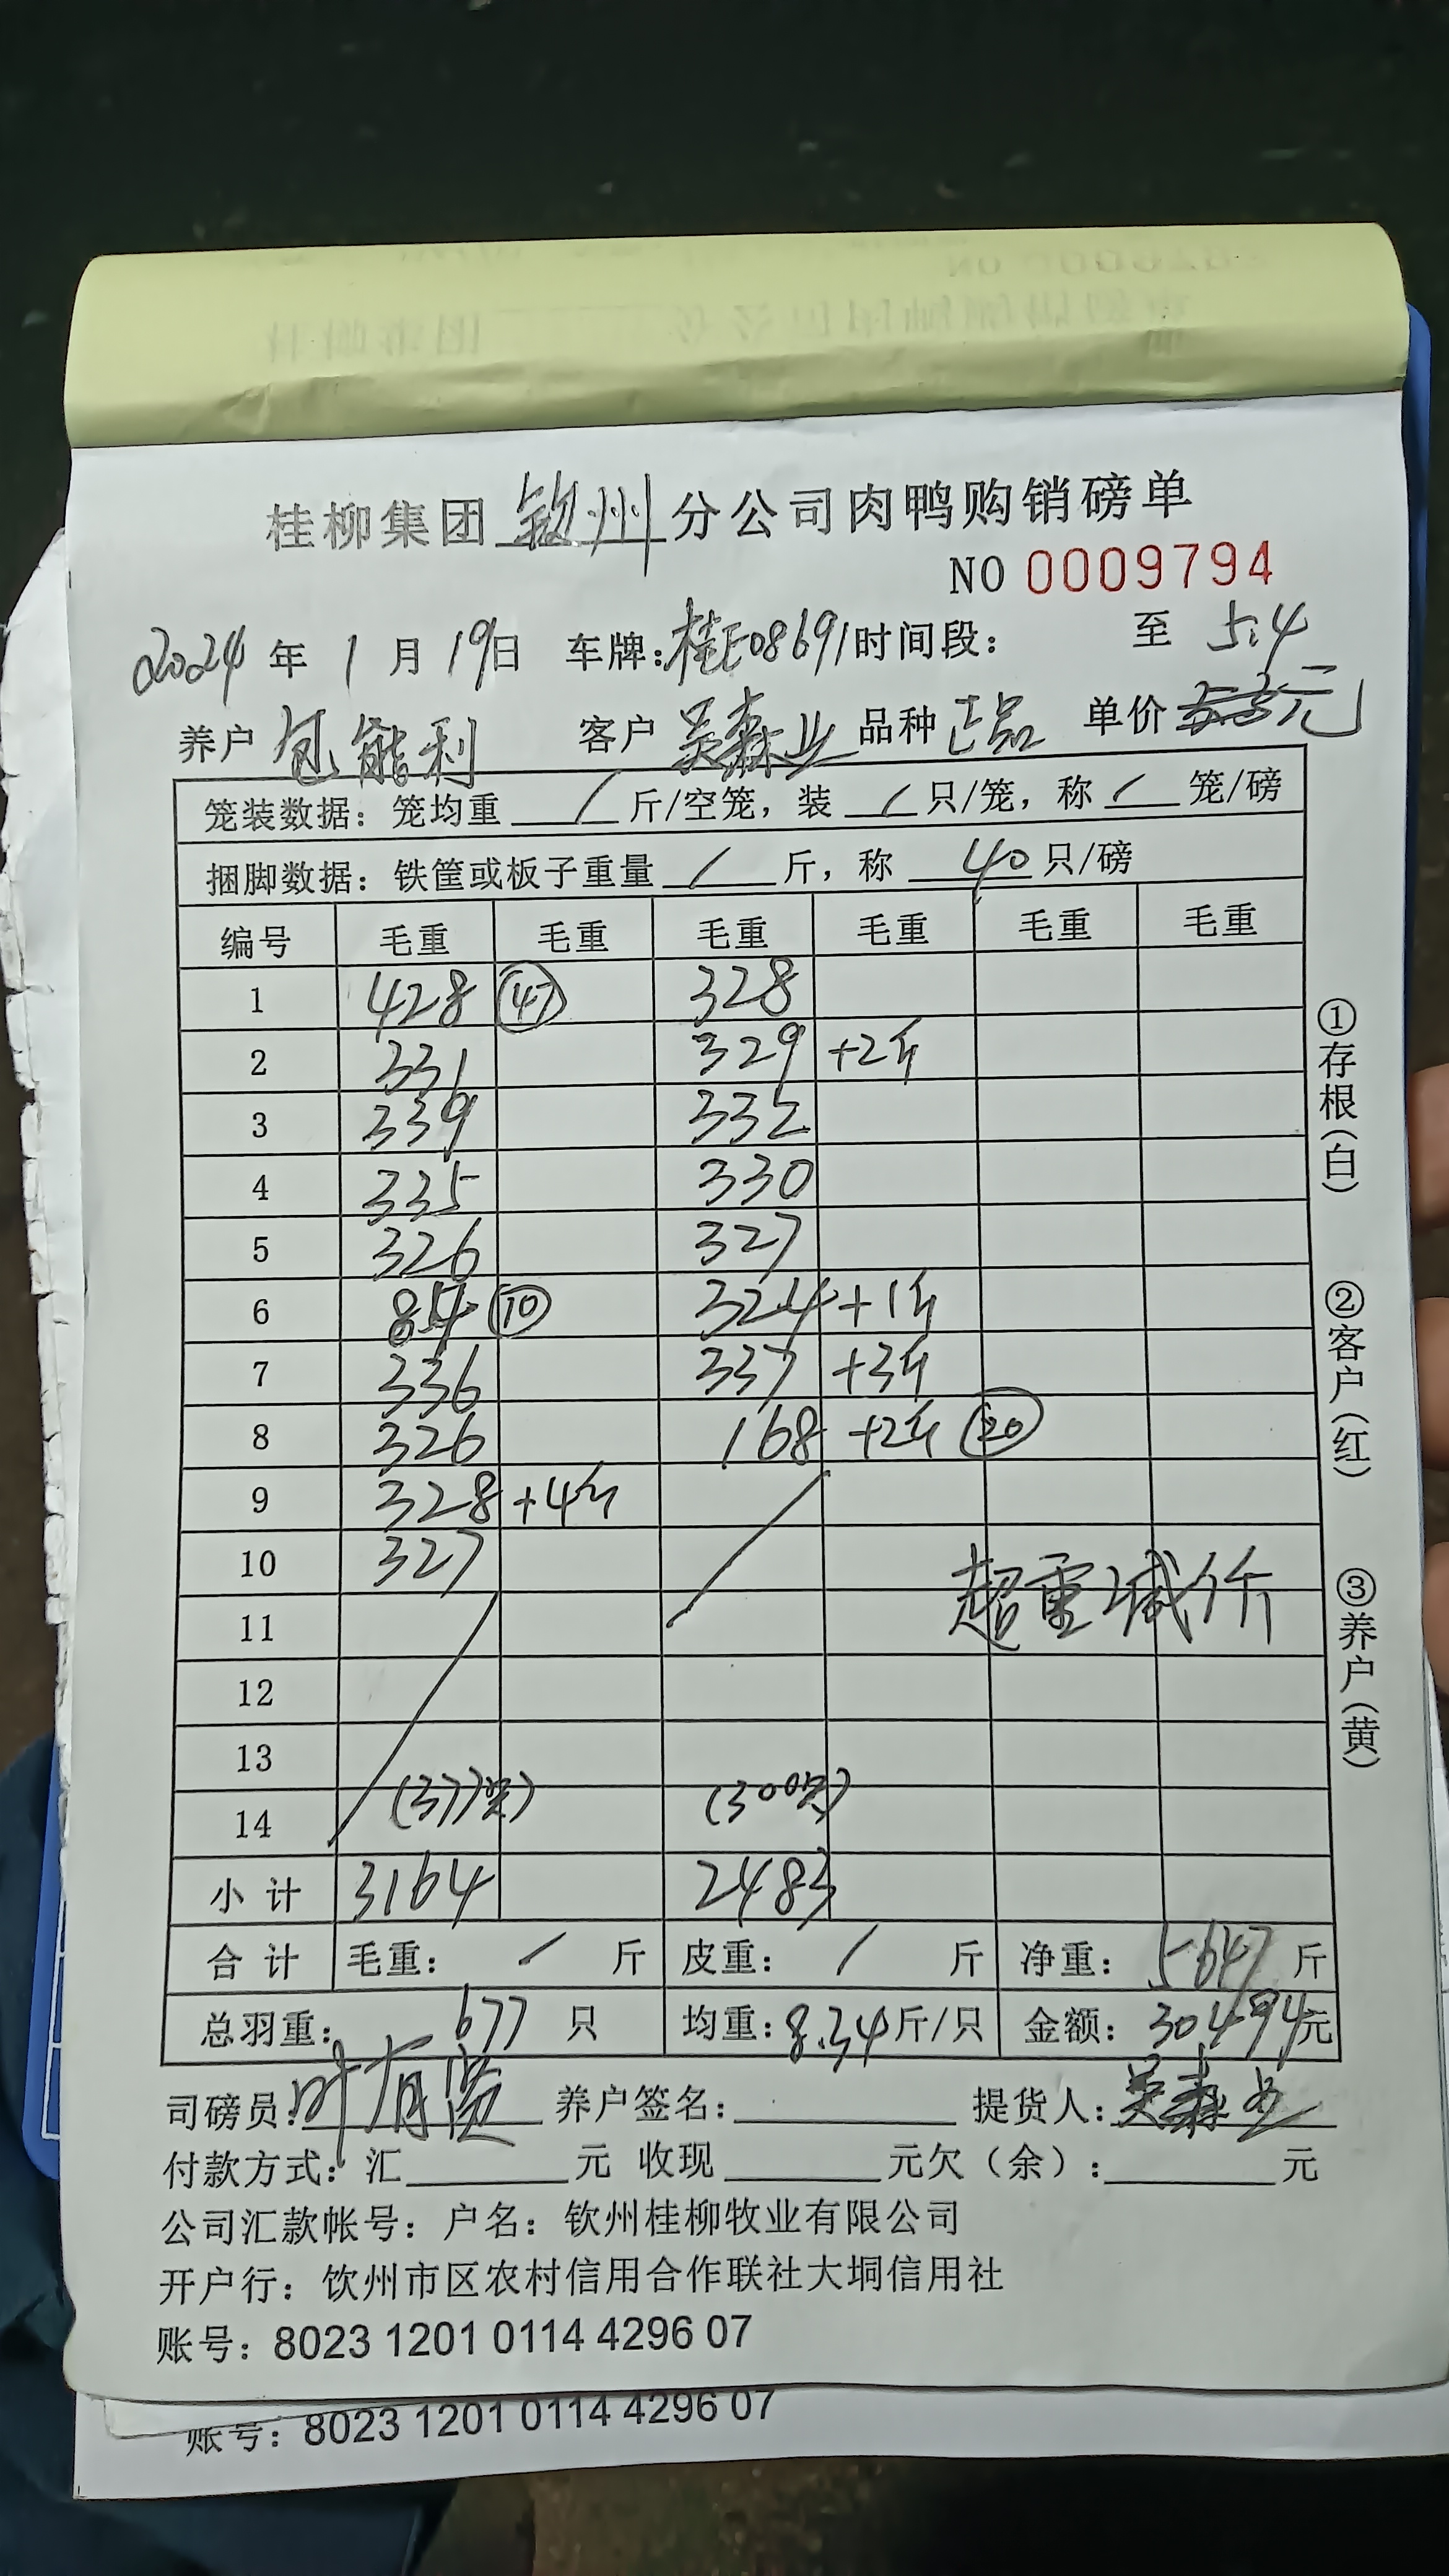 桂柳集团 钦州 分公司肉鸭购销磅单
NO 0009794
2024 年 1 月 19日 车牌:桂E08691时间段: 至 5.4
养户 包能利 客户 吴森业 品种 正品 单价 元
笼装数据: 笼均重 / 斤/空笼, 装 / 只/笼, 称 / 笼/磅
捆脚数据: 铁筐或板子重量 / 斤, 称 40 只/磅
编号 毛重 毛重 毛重 毛重 毛重 毛重
1 428 47 328
2 331 329 +2斤
3 339 332
4 335 330
5 326 327
6 84 10 324 +1斤
7 336 337 +3斤
8 326 168 +2斤 20
9 328 +4斤
10 327
超重减价
11
12
13
14 (377只) (300只)
小计 3164 2483
合计 毛重: / 斤 皮重: / 斤 净重: 5647 斤
总羽重: 677 只 均重: 8.34 斤/只 金额: 30494元
司磅员: 叶有贤 养户签名: 提货人: 吴森业
付款方式: 汇 元 收现 元欠(余): 元
公司汇款帐号: 户名: 钦州桂柳牧业有限公司
开户行: 钦州市区农村信用合作联社大垌信用社
账号: 8023 1201 0114 4296 07
①存根(白)
②客户(红)
③养户(黄)
账号: 8023 1201 0114 4296 07